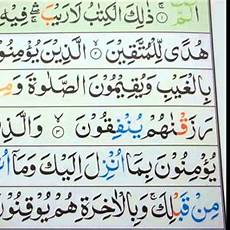 الٓمّٓ ۚ ۝۱ ذٰلِكَ الْكِتٰبُ لَا رَيْبَ ۛۖ فِيْهِ
هُدًى لِّلْمُتَّقِيْنَ ۝۲ الَّذِيْنَ يُؤْمِنُوْ
بِالْغَيْبِ وَيُقِيْمُوْنَ الصَّلٰوةَ وَمِ
رَزَقْنٰهُمْ يُنْفِقُوْنَ ۝۳ وَالَّذِ
يُؤْمِنُوْنَ بِمَآ اُنْزِلَ اِلَيْكَ وَمَآ اُنْ
مِنْ قَبْلِكَ ۚ وَبِالْاٰخِرَةِ هُمْ يُوْقِنُوْنَ